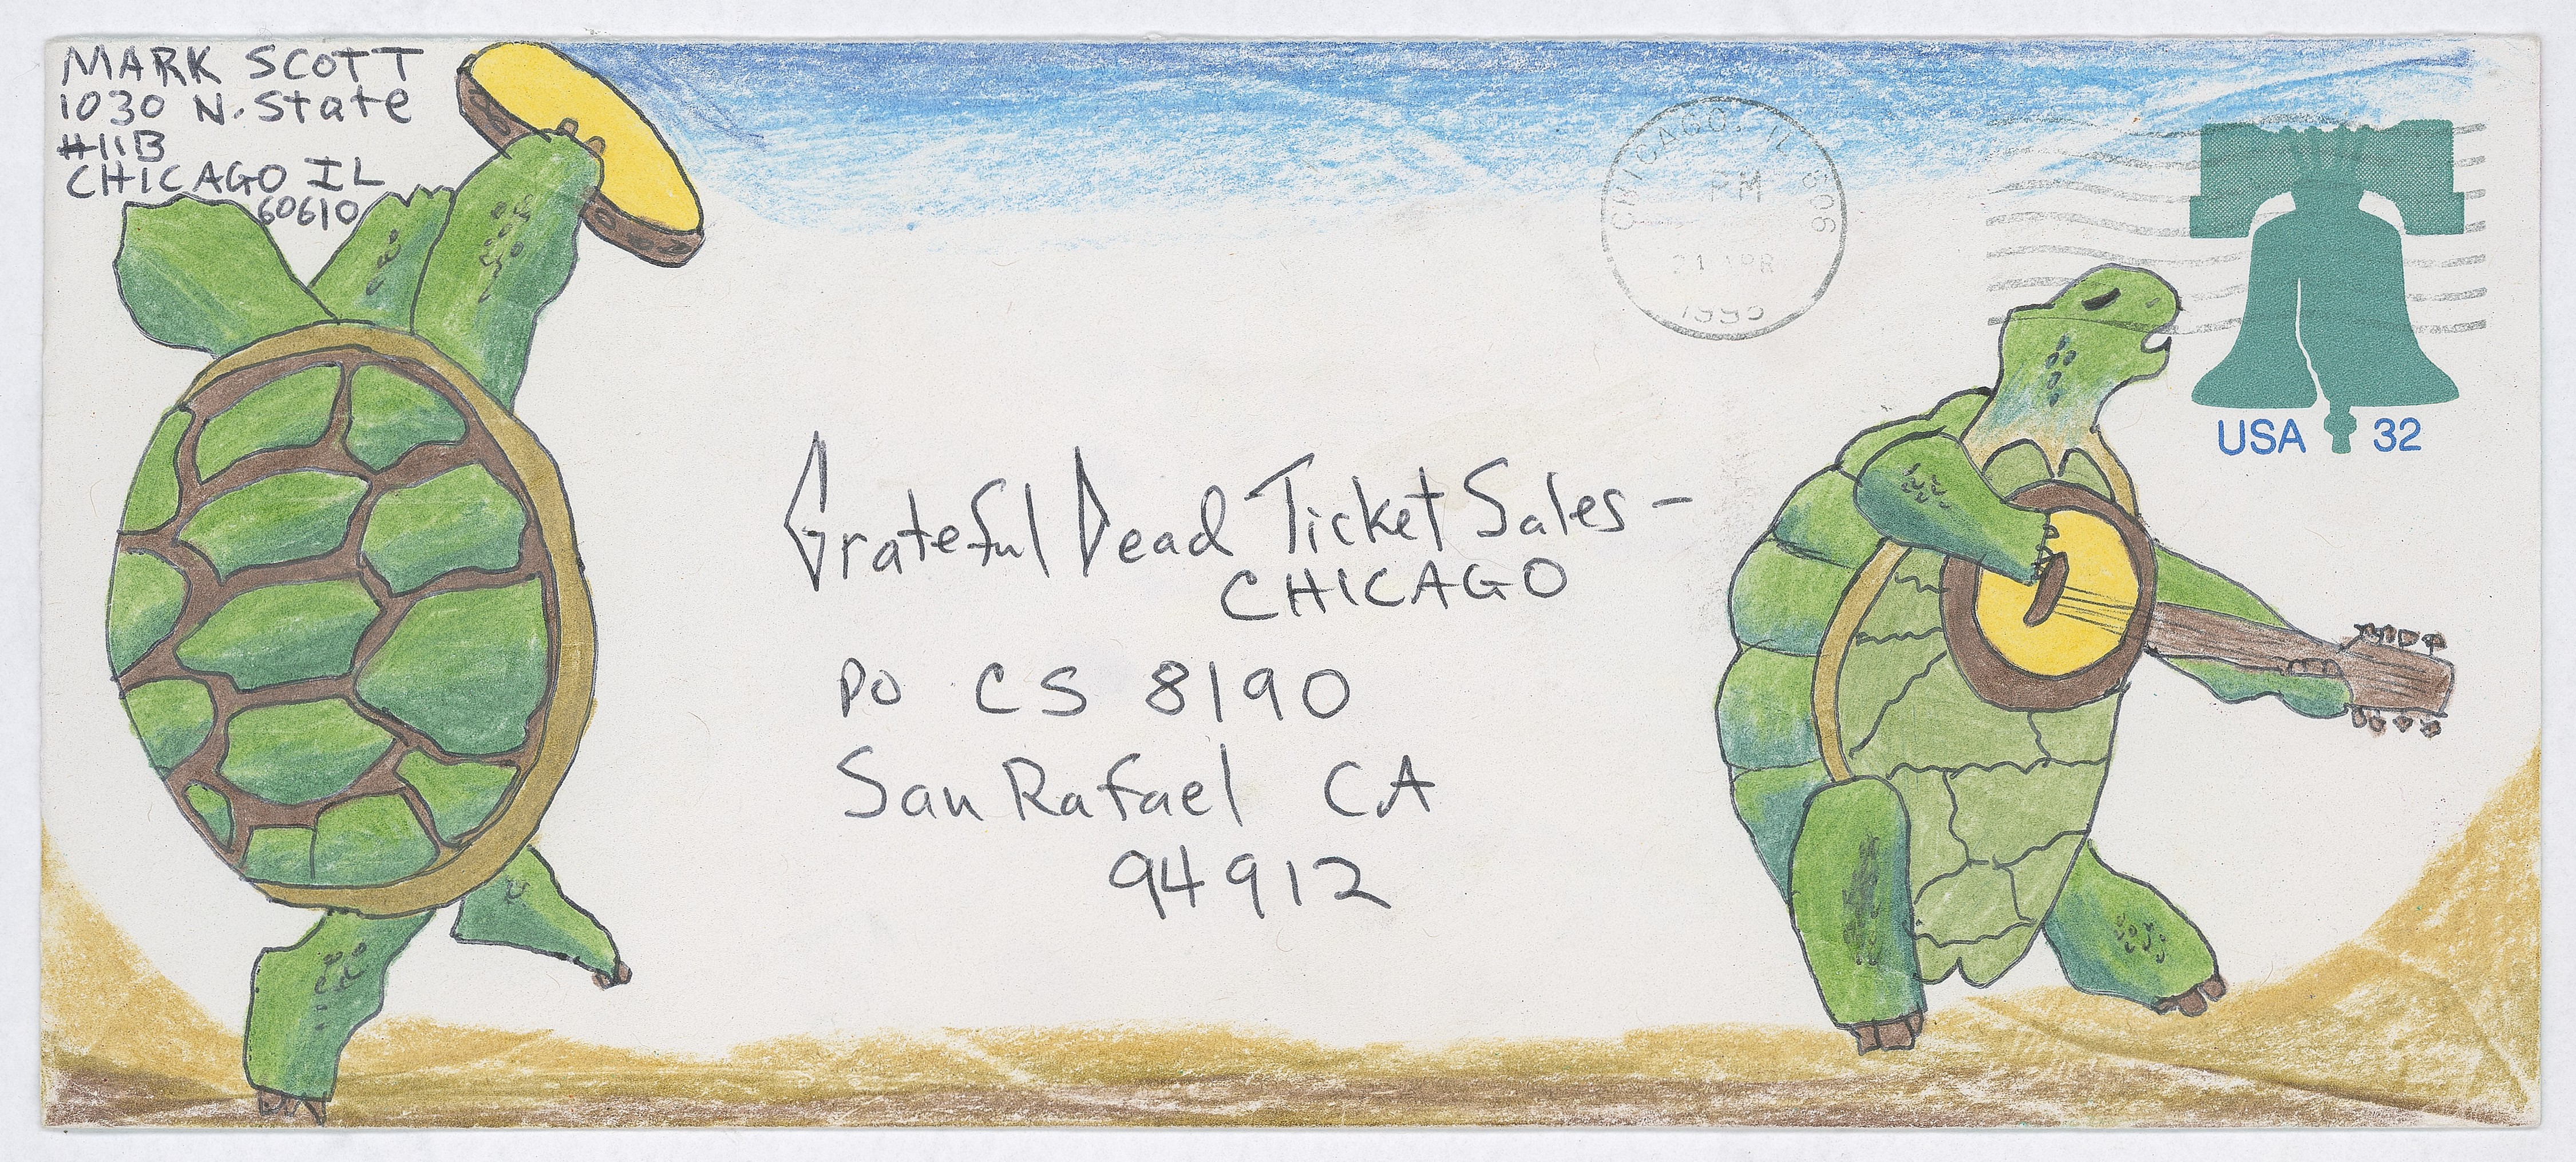 MARK SCOTT
1030 N. State
#11B
CHICAGO IL
60610
CHICAGO, IL 606
PM
21 APR
1995
USA 32
Grateful Dead Ticket Sales –
CHICAGO
PO CS 8190
San Rafael CA
94912